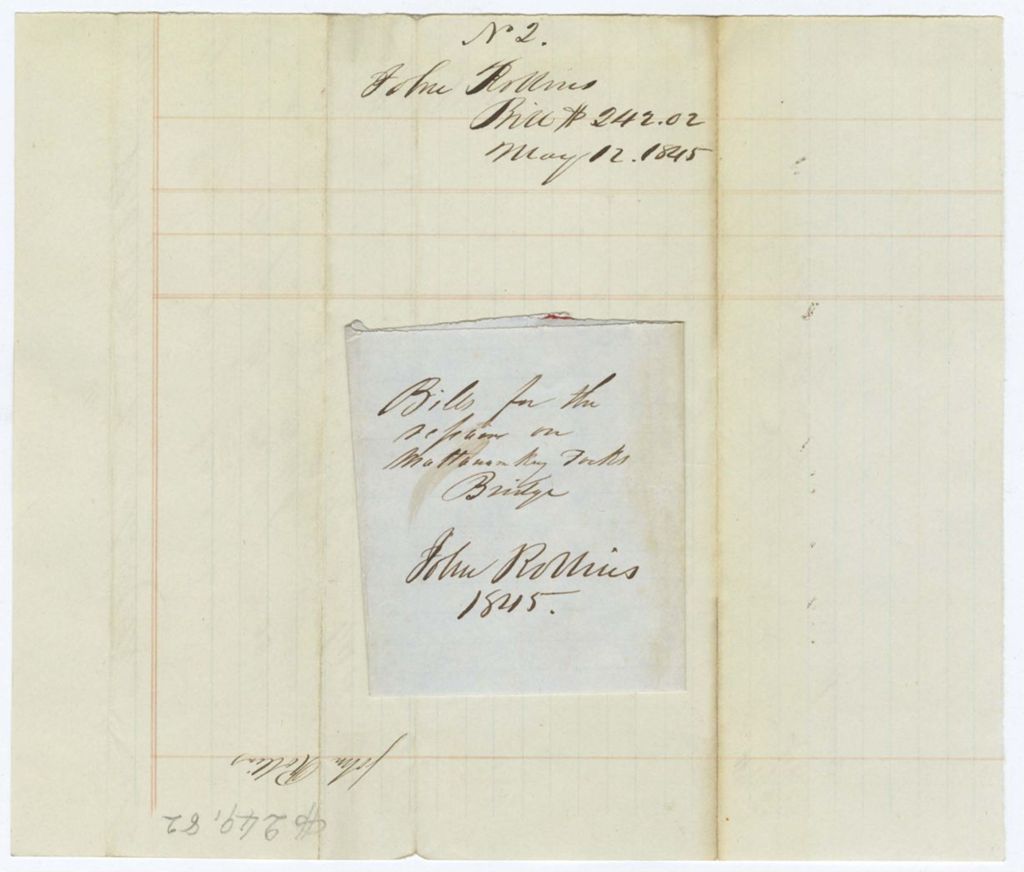 No 2.
John Rollins
Bill $242.02
May 12. 1845
Bills for the
repairs on
Mattawamkeag Forks
Bridge
John Rollins
1845.
John Rollins
$249,82